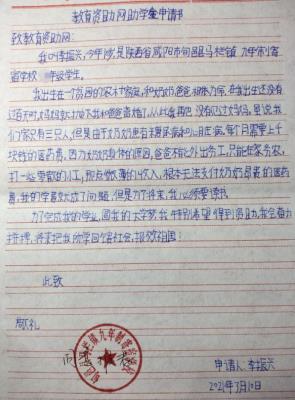 教育资助网助学金申请书
致教育资助网:
我叫李振兴,今年 岁,是陕西省咸阳市旬邑县马栏镇九年制寄
宿学校 年级学生。
我出生在一个贫困的农木村家庭,和奶奶、爸爸相依为命,在我出生还没有
过百天时,妈妈就丢下我和爸爸离婚了,从此再也 没有见过妈妈,虽说我
们家只有三口人,但是由于奶奶患有糖尿病和心脏病,每个月需要上千
块钱的医药费,因为奶奶身体的原因,爸爸不能外出务工,只能在家务农,
打一些零散的小工,那点微薄的收入,根本无法支付奶奶昂贵的医药
费,我的学费就成了问题,但是为了将来,我必须要读书。
为了完成我的学业,圆我的大学梦,我特别希望得到资助,我会奋力
拼搏,将来把我所学回馈社会,报效祖国!
此致
敬礼
同意
九年制寄宿学校
申请人:李振兴
2021年3月10日